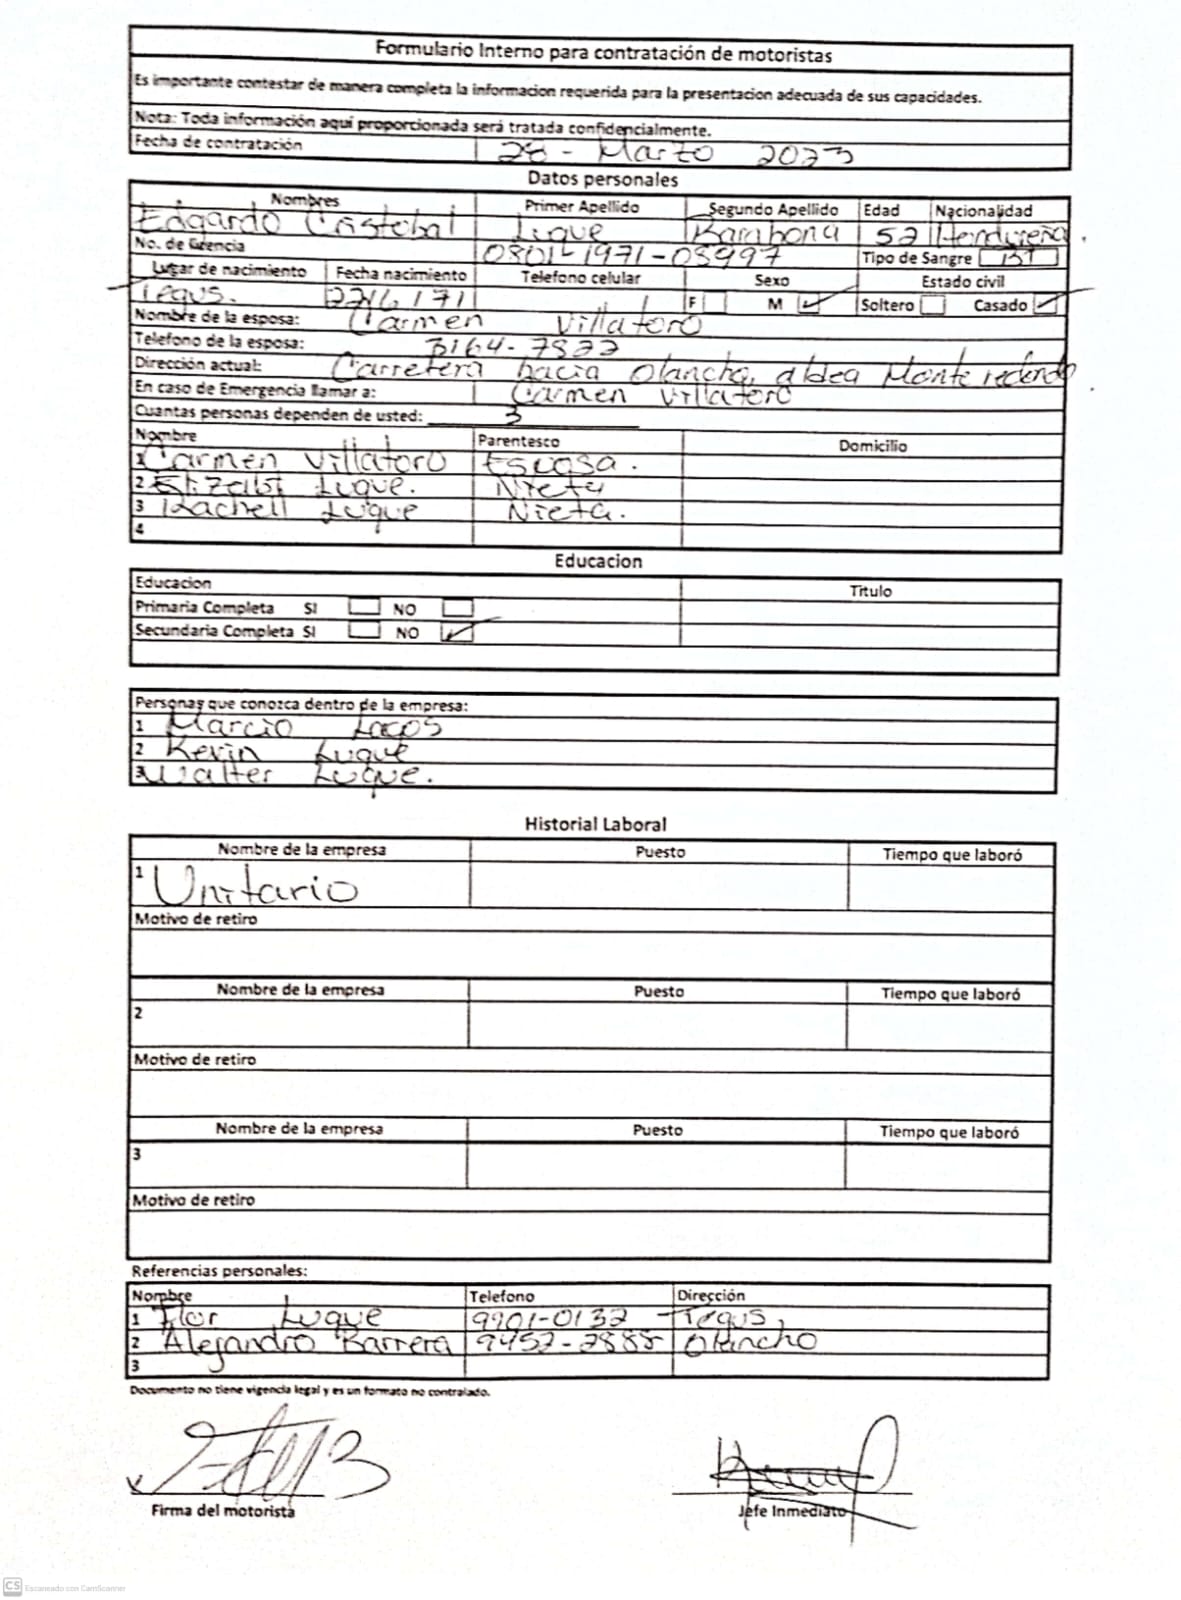 Formulario Interno para contratación de motoristas
Es importante contestar de manera completa la informacion requerida para la presentacion adecuada de sus capacidades.
Nota: Toda información aquí proporcionada será tratada confidencialmente.
Fecha de contratación 28 - Marzo 2023
Datos personales
Nombres Primer Apellido Segundo Apellido Edad Nacionalidad
Edgardo Cristobal Luque Barahona 52 Hondureña.
No. de licencia 0801-1971-03997 Tipo de Sangre
Lugar de nacimiento Fecha nacimiento Telefono celular Sexo Estado civil
Tegus. 22/6/71 F M Soltero Casado
Nombre de la esposa: Carmen Villatoro
Telefono de la esposa: 3164-7822
Dirección actual: Carretera hacia Olancho, aldea Monte redondo
En caso de Emergencia llamar a: Carmen Villatoro
Cuantas personas dependen de usted: 3
Nombre Parentesco Domicilio
1 Carmen Villatoro Esposa.
2 Luque. Nieta
3 Rachell Luque Nieta.
4
Educacion
Educacion Titulo
Primaria Completa SI NO
Secundaria Completa SI NO
Personas que conozca dentro de la empresa:
1 Marcio Lagos
2 Kevin Luque
3 Walter Luque.
Historial Laboral
Nombre de la empresa Puesto Tiempo que laboró
1 Unitario
Motivo de retiro
Nombre de la empresa Puesto Tiempo que laboró
2
Motivo de retiro
Nombre de la empresa Puesto Tiempo que laboró
3
Motivo de retiro
Referencias personales:
Nombre Telefono Dirección
1 Flor Luque 9901-0132 Tegus,
2 Alejandro Barrera 9452-2888 Olancho
3
Documento no tiene vigencia legal y es un formato no contralado.
Firma del motorista Jefe Inmediato
CS Escaneado con CamScanner